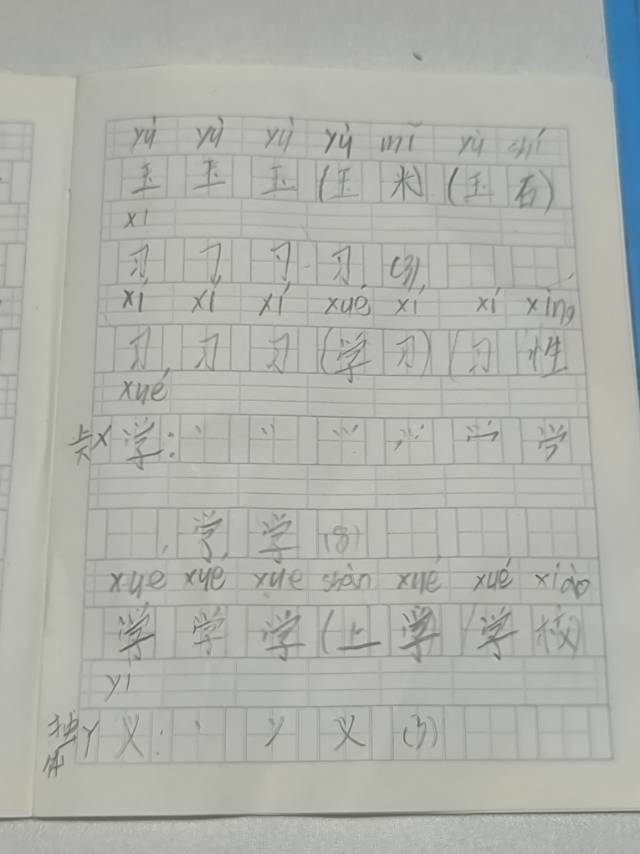 yù yù yù yù mǐ yù shí
玉 玉 玉 (玉 米) (玉 石)
xí
习 𠃌 习 习 (3)
xí xí xí xué xí xí xìng
习 习 习 (学 习) (习 性
xué
学: 丶 丷 ⺍
学 学 (8)
xué xué xué shàng xué xué xiào
学 学 学 (上 学) (学 校)
yì
独体 Y 义: 丶 义 (3)